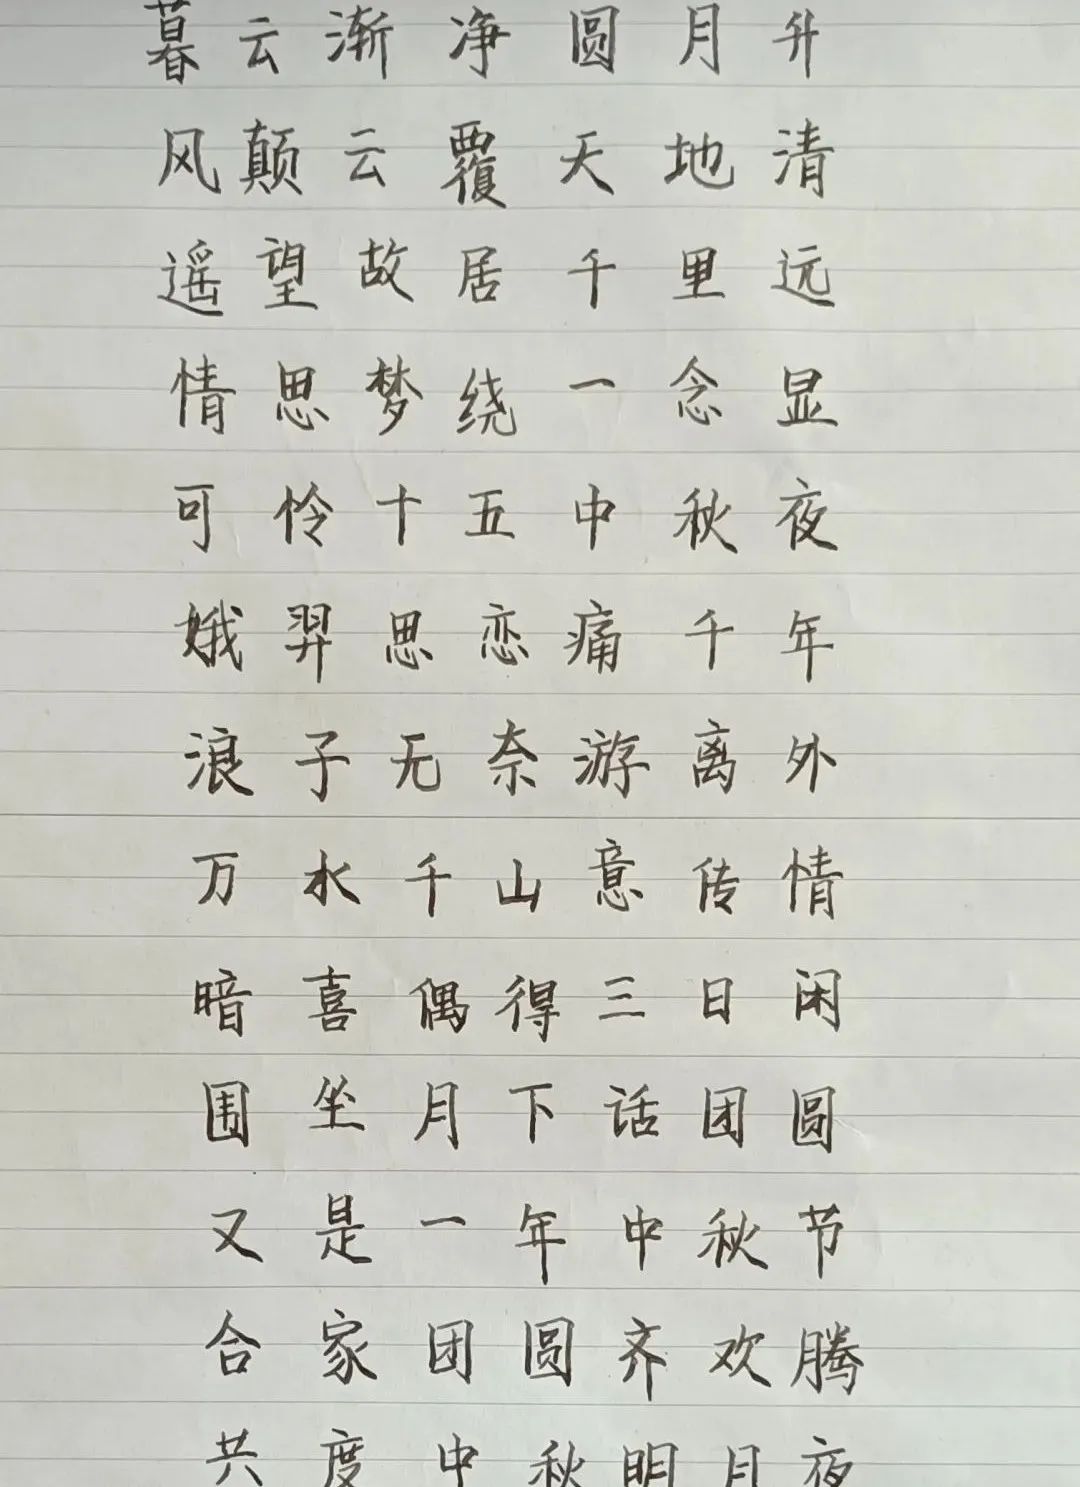 暮云渐净圆月升
风颠云覆天地清
遥望故居千里远
情思梦绕一念显
可怜十五中秋夜
娥羿思恋痛千年
浪子无奈游离外
万水千山意传情
暗喜偶得三日闲
围坐月下话团圆
又是一年中秋节
合家团圆齐欢腾
共度中秋明月夜